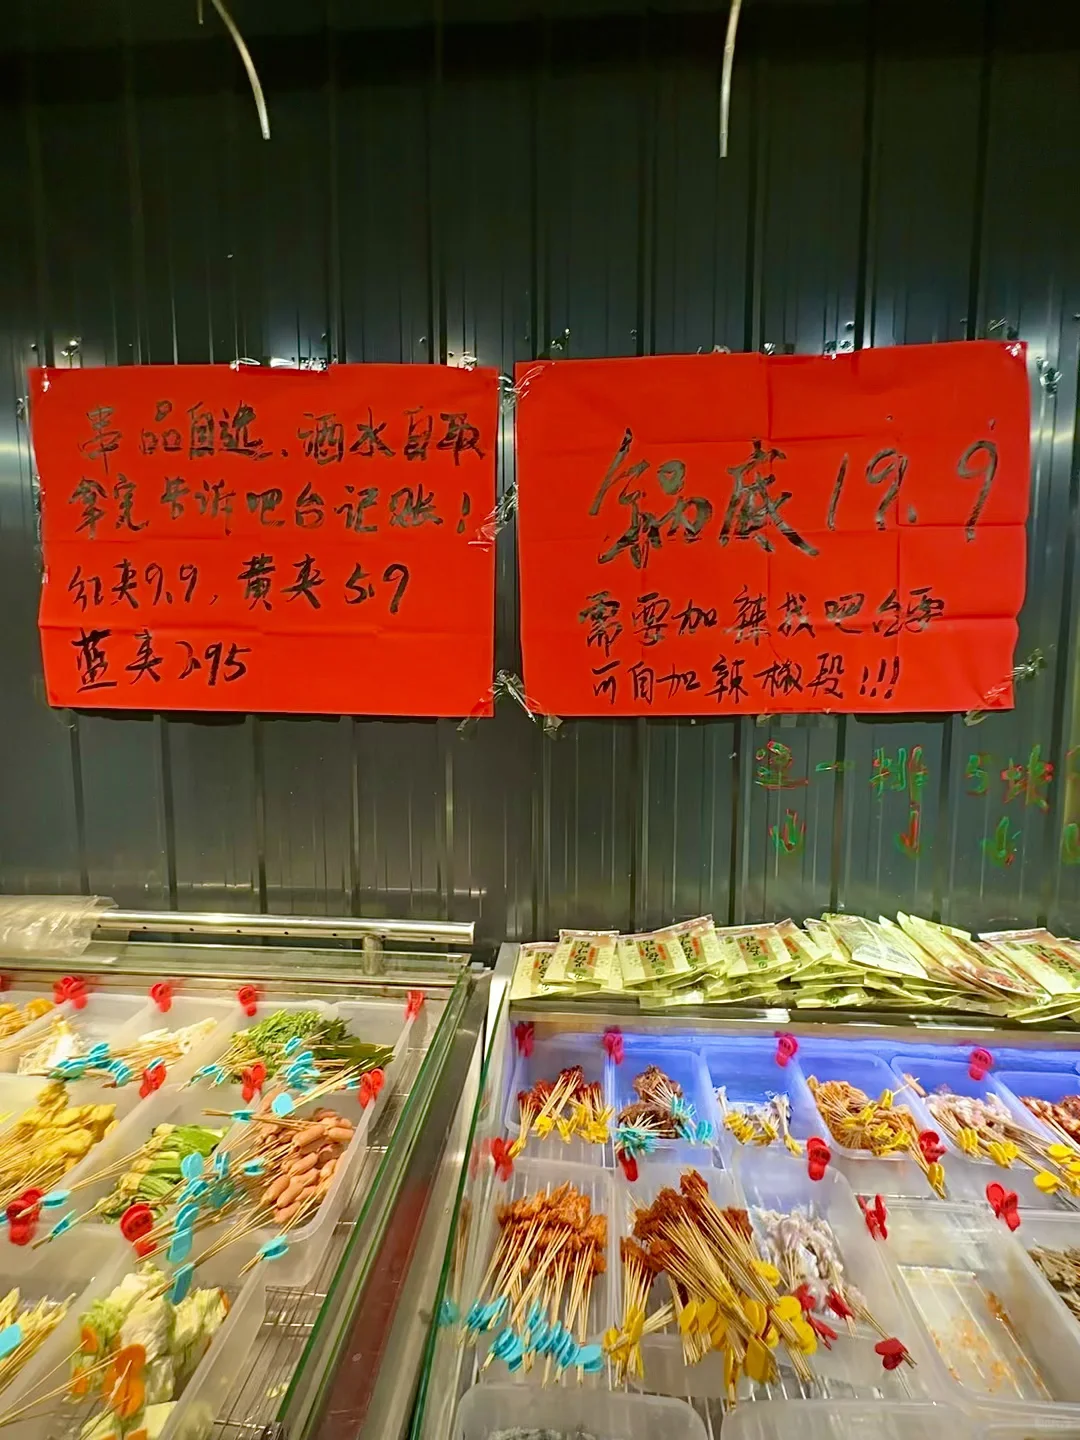 串品自选、酒水自取
拿完告诉吧台记账!
红夹9.9,黄夹5.9
蓝夹2.95
锅底19.9
需要加辣找吧台要
可自加辣椒段!!!
这一排5块